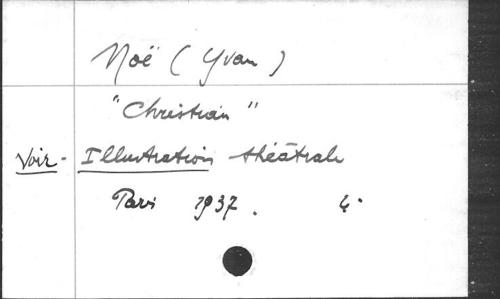 Noë (Yvan)
"Christian"
Voir - Illustration théâtrale
Paris 1937. 4°